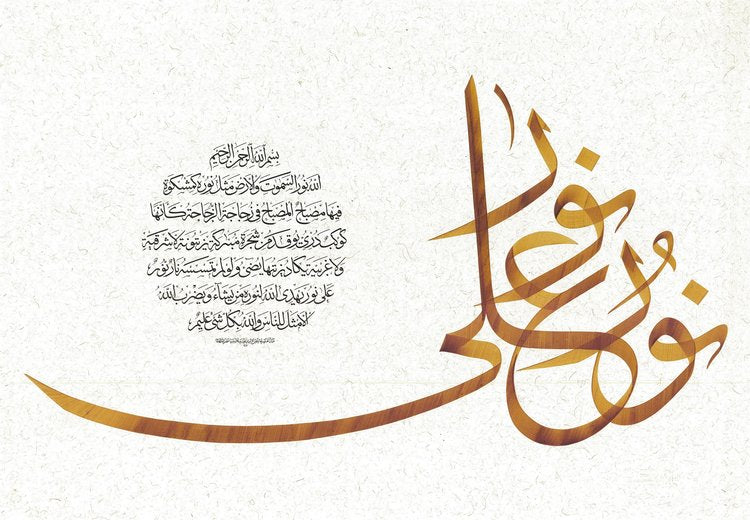 نور على نور
بسم الله الرحمن الرحيم
الله نور السموت والأرض مثل نوره كمشكوة
فيها مصباح المصباح في زجاجة الزجاجة كأنها
كوكب دري يوقد من شجرة مبركة زيتونة لا شرقية
ولا غربية يكاد زيتها يضئ ولو لم تمسسه نار نور
على نور يهدي الله لنوره من يشاء ويضرب الله
الأمثل للناس والله بكل شئ عليم